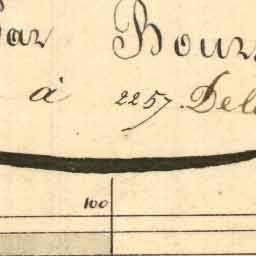 ar Bour
à 2257. Del
100